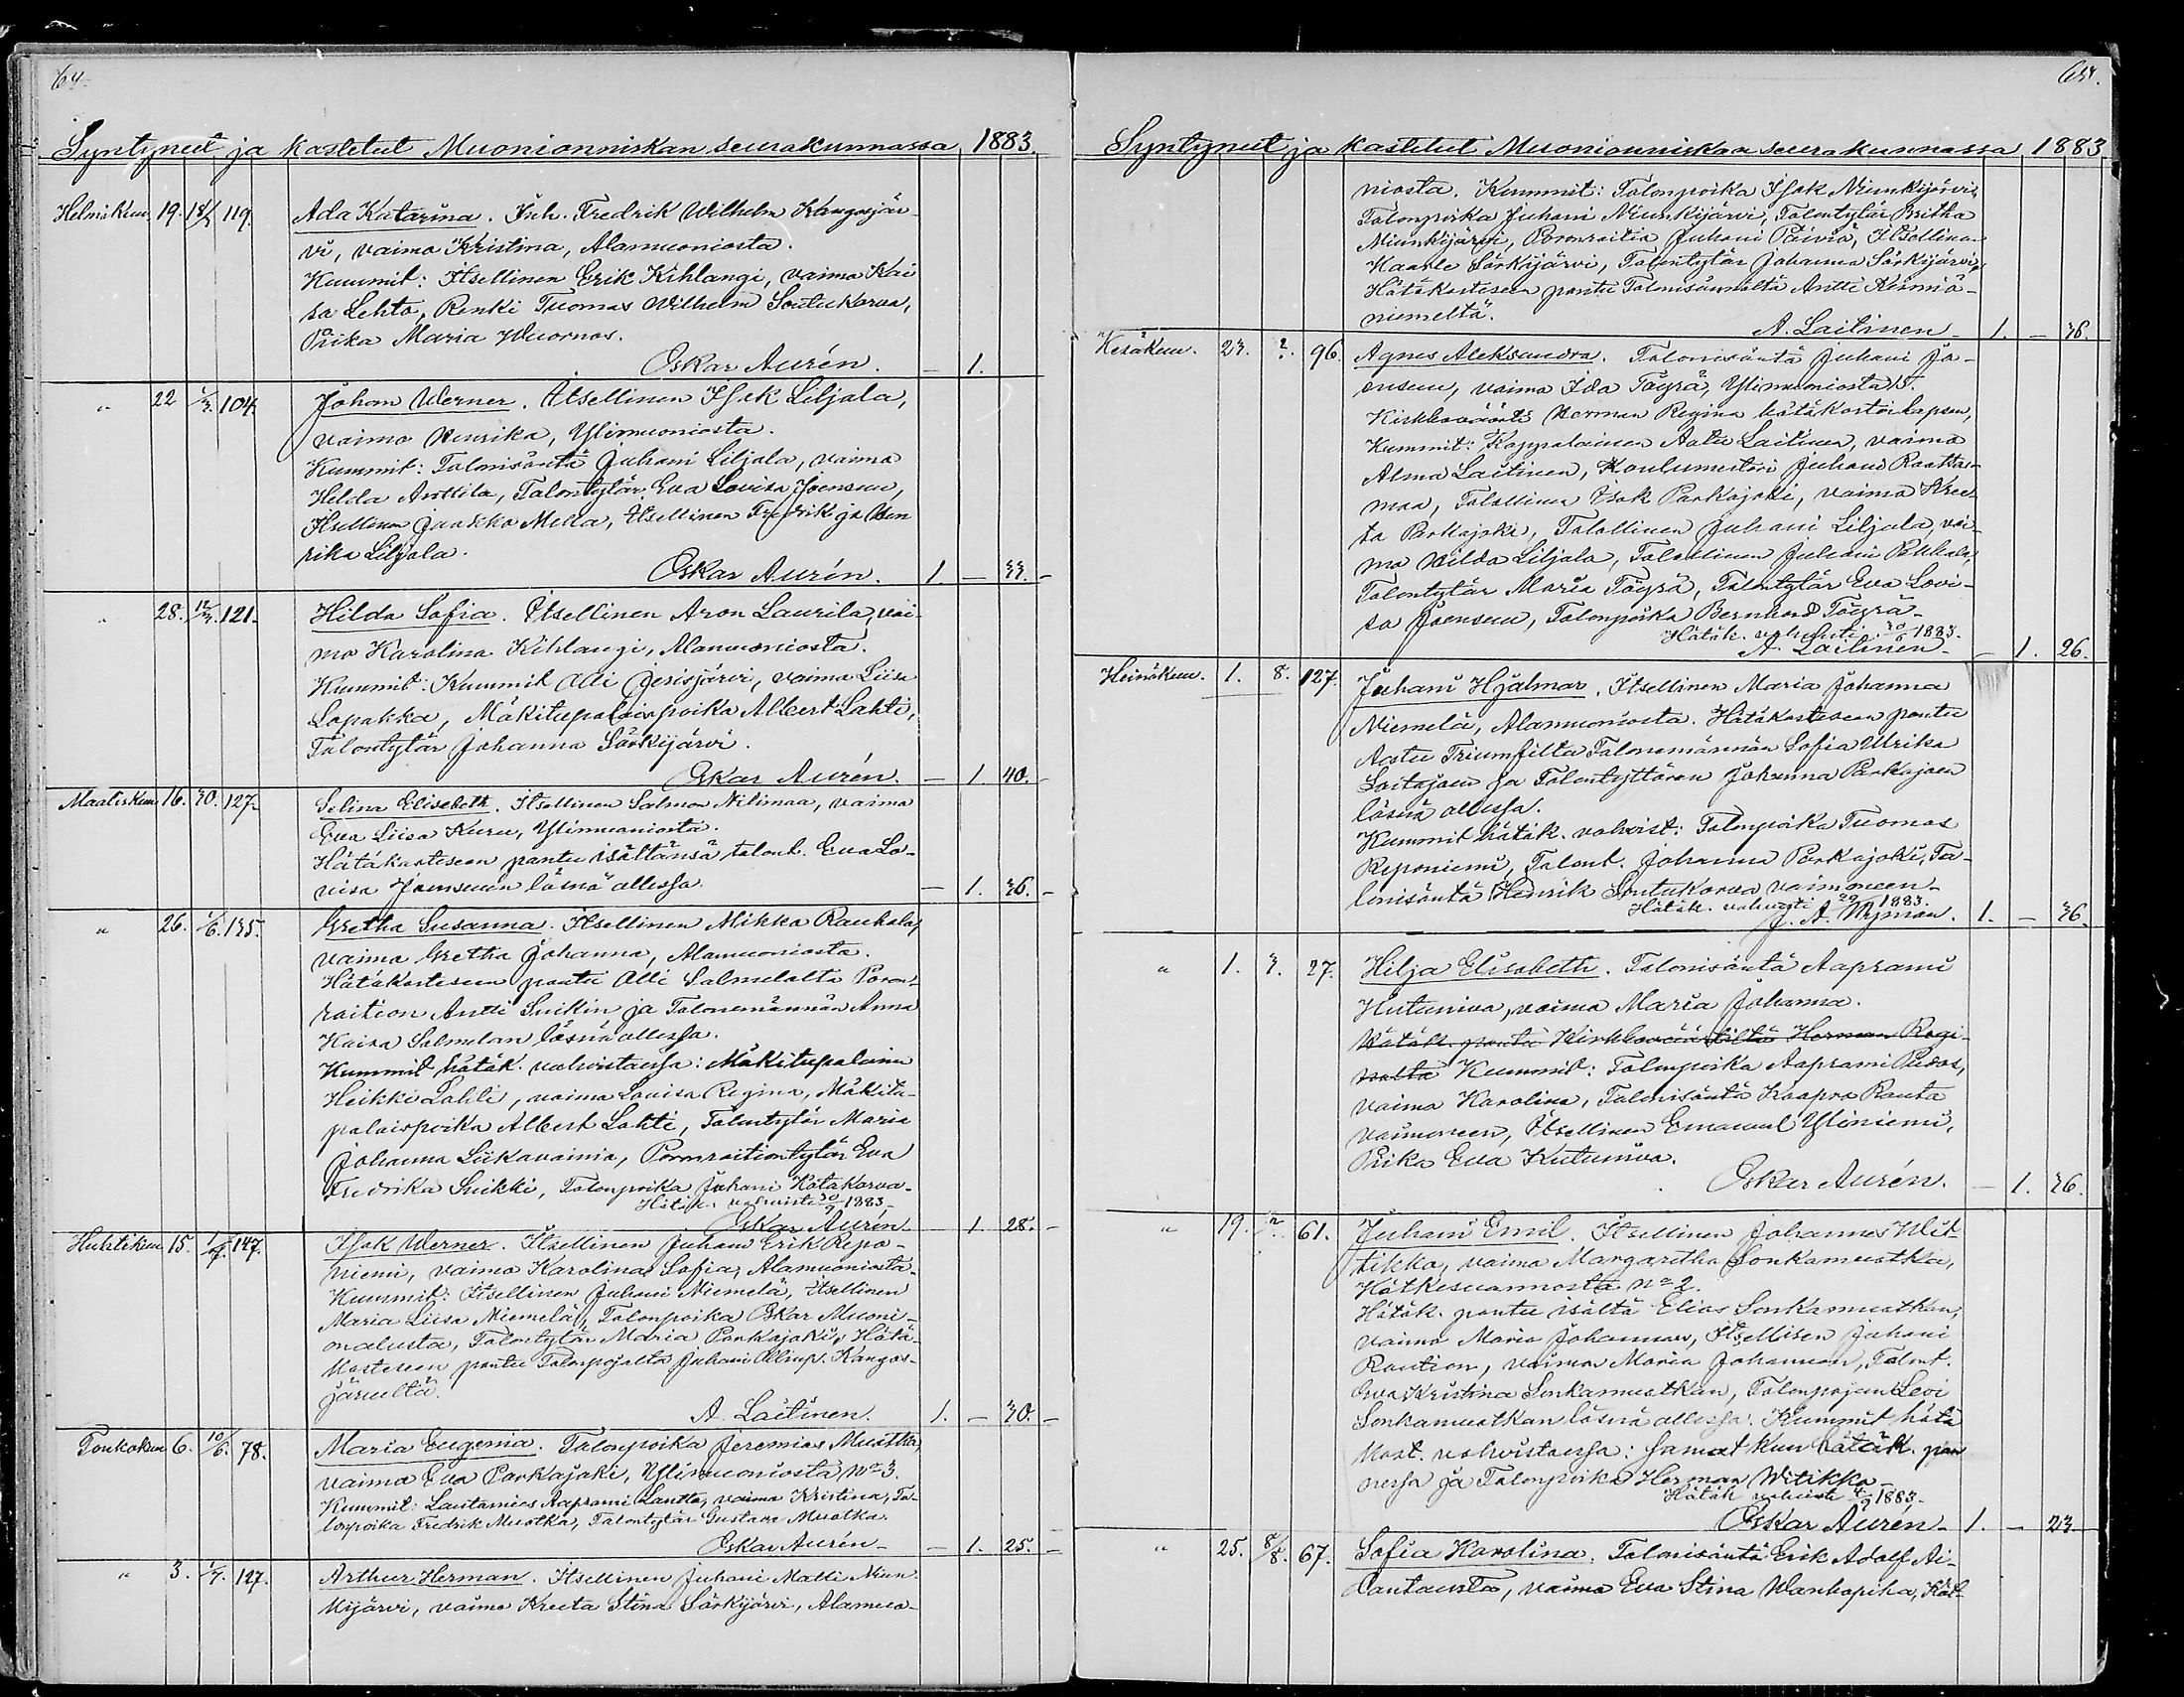 64.
Syntyneet ja kastetut Muonionniskan seurakunnassa 1883.
Helmikuu 19. 18/3 119. Ada Katarina. Inh. Fredrik Wilhelm Kangosjär-
vi, vaimo Kristina, Alamuoniosta.
Kummit: Itsellinen Erik Kihlangi, vaimo Kai
sa Lehto, Renki Tuomas Wilhelm Soutukorva,
Piika Maria Wuornos.
Oskar Aurén. — 1.
" 22 1/3. 104. Johan Werner. Itsellinen Isak Liljala,
vaimo Henrika, Ylimuoniosta.
Kummit: Talonisäntä Juhani Liljala, vaimo
Hilda Anttila, Talontytär Eva Lovisa Joensuu,
Itsellinen Jaakko Mella, Itsellinen Fredrik ja Hen
rika Liljala.
Oskar Aurén. 1. — 33. —
" 28. 12/3. 121. Hilda Sofia. Itsellinen Aron Laurila, vai-
mo Karolina Kihlangi, Alamuoniosta.
Kummit: Kummit Olli Jerisjärvi, vaimo Liisa
Lapakka, Mäkitupalaispoika Albert Lahti,
Talontytär Johanna Särkijärvi.
Oskar Aurén. — 1 40. —
Maaliskuu 16. 30. 127. Selina Elisabeth. Itsellinen Salmon Nilimaa, vaimo
Eva Liisa Kuru, Ylimuoniosta.
Hätäkasteseen pantu isältänsä talont. Eva Lo-
visa Joensuun läsnä ollessa. — 1. 36. —
" 26. 1/6. 135. Gretha Susanna. Itsellinen Mikko Rauhala,
vaimo Gretha Johanna, Alamuoniosta.
Hätäkasteseen pantu Olli Salmelalta Poron-
raition Antti Suikin ja Talonemännän Anna
Kaisa Salmelan läsnä ollessa.
Kummit hätäk. vahvistaessa: Mäkitupalainen
Heikki Lahti, vaimo Lovisa Regina, Mäkitu-
palaispoika Albert Lahti, Talontytär Maria
Johanna Liikavainio, Poronraitiontytär Eva
Fredrika Suikki, Talonpoika Juhani Kätäkorva.
Hätäk. vahvisti 30/9 1883.
Oskar Aurén — 1. 28. —
Huhtikuu 15. 147. Isak Werner. Itsellinen Juhani Erik Repo-
niemi, vaimo Karolina Sofia, Alamuoniosta.
Kummit: Itsellinen Juhani Niemelä, Itsellinen
Maria Liisa Niemelä, Talonpoika Oskar Muoni-
onalusta, Talontytär Maria Parkajoki, Hätä-
kasteseen pantu Talonpojalta Juhani Kangos-
järveltä.
A. Laitinen. 1. — 30. —
Toukokuu 6. 10/6. 78. Maria Eugenia. Talonpoika Jeremias Muotka,
vaimo Eva Parkajoki, Ylimuoniosta, No 3.
Kummit: Lautamies Aaprami Lantto, vaimo Kristina, Ta-
lonpoika Fredrik Muotka, Talontytär Gustava Muotka.
Oskar Aurén — 1. 25. —
" 3. 1/7. 127. Arthur Herman. Itsellinen Juhani Matti Niun-
kijärvi, vaimo Kreeta Stina Särkijärvi, Alamuo-
65.
Syntyneet ja kastetut Muonionniskan seurakunnassa 1883
niosta. Kummit: Talonpoika Isak Niunkijärvi,
Talonpoika Juhani Niunkijärvi, Talontytär Britha
Niunkijärvi, Poronraitia Juhani Päiviö, Itsellinen
Kaarle Särkijärvi, Talontytär Johanna Särkijärvi,
Hätäkasteseen pantu Talonisännältä Antti Keimiö-
niemeltä.
A. Laitinen 1. — 36.
Kesäkuu. 23. ?. 96. Agnes Aleksandra. Talonisäntä Juhani Jo-
ensuu, vaimo Ida Töyrä, Ylimuoniosta 15.
Kirkkoväärti Herman Regina hätäkastoi lapsen,
Kummit: Kappalainen Aatu Laitinen, vaimo
Alma Laitinen, Koulumestari Juhani Raattas-
maa, Talollinen Isak Parkajoki, vaimo Kree-
ta Parkajoki, Talollinen Juhani Liljala, vai-
mo Hilda Liljala, Talollinen Juhani Pekkala,
Talontytär Maria Töyrä, Talontytär Eva Lovi-
sa Joensuu, Talonpoika Bernhard Töyrä.
Hätäk. vahvisti 30/6 1883.
A. Laitinen — 1. 26.
Heinäkuu. 1. 8. 127. Juhani Hjalmar. Itsellinen Maria Johanna
Niemelä, Alamuoniosta. Hätäkasteseen pantu
Aatu Triumfilta Talonemännän Sofia Ulrika
Soitajoen ja Talontyttären Johanna Parkajoen
läsnä ollessa.
Kummit hätäk. vahvist: Talonpoika Tuomas
Reponiemi, Talont. Johanna Parkajoki, Ta-
lonisäntä Hedrik Soutukorva vaimoneen.
Hätäk. vahvisti 29/ 1883.
J. A. Nyman. 1. — 36.
" 1. 3. 27. Hilja Elisabeth. Talonisäntä Aaprami
Kutuniva, vaimo Maria Johanna.
Hätäk. pantu Kirkkoväärtiltä Herman Regi-
nalta Kummit: Talonpoika Aaprami Puoas,
vaimo Karolina, Talonisäntä Kaapro Rauta
vaimoneen, Itsellinen Emanuel Yliniemi,
Piika Eva Kutuniva.
Oskar Aurén. — 1. 36.
" 19. ?. 61. Juhani Emil. Itsellinen Johannes Wit-
tikko, vaimo Margaretha Sonkamuotka,
Kätkesuannosta No 2.
Hätäk. pantu isältä Elias Sonkamuotkan,
vaimo Maria Johannan, Itsellisen Juhani
Raution, vaimon Maria Johannan, Talont.
Eva Kristina Sonkamuotkan, Talonpojan Levi
Sonkamuotkan läsnä ollessa. Kummit hätä
kast. vahvistaessa: samat kun hätäk. pan
nessa ja Talonpoika Herman Witikko.
Hätäk vahvisti 4/9 1883.
Oskar Aurén 1. — 23
" 25. 8/8. 67. Sofia Karolina. Talonisäntä Erik Adolf Ai-
lantausta, vaimo Eva Stina Wanhapiha, Kät-